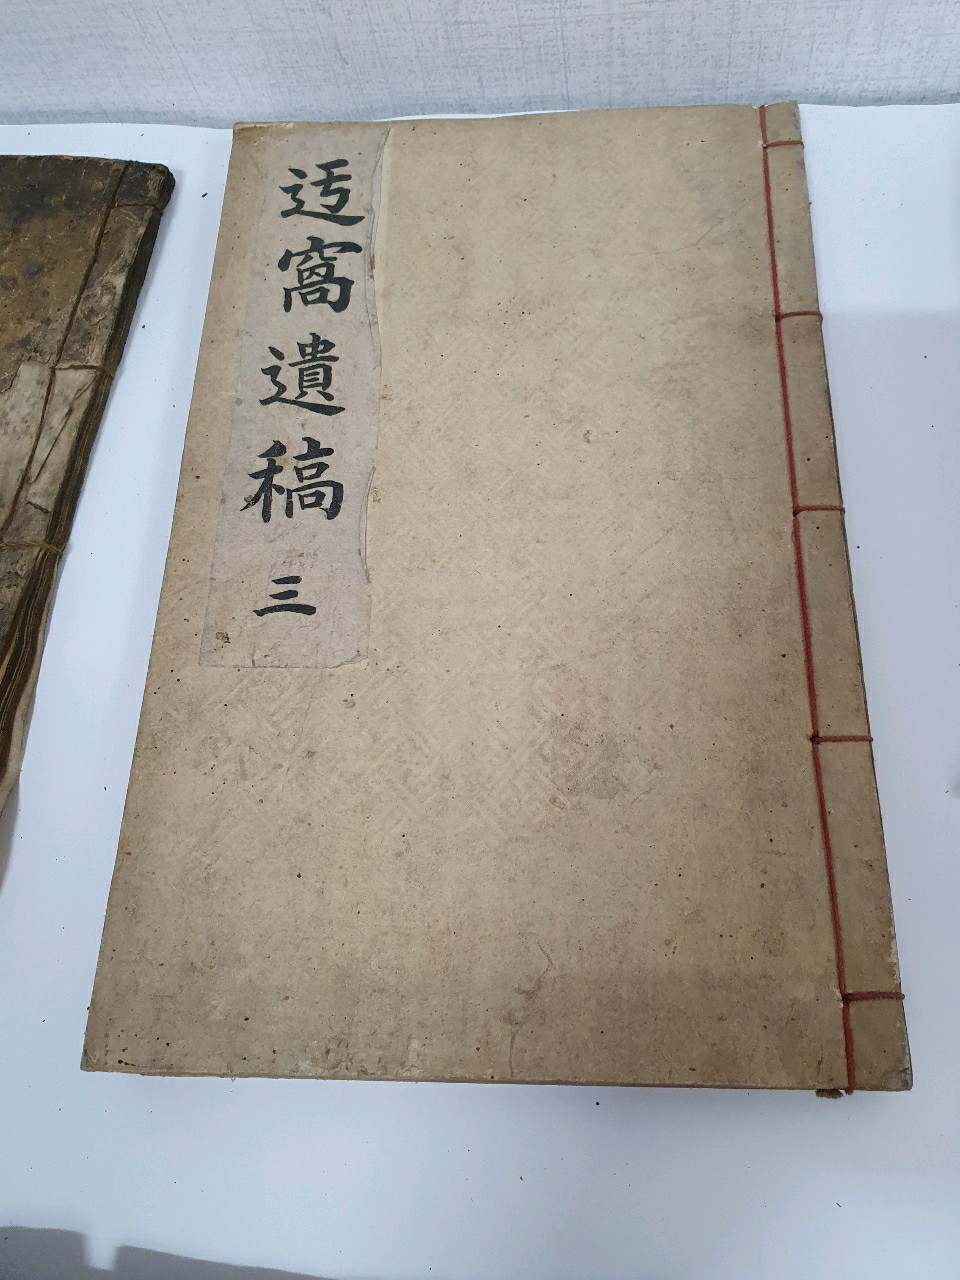 迃窩遺稿
三